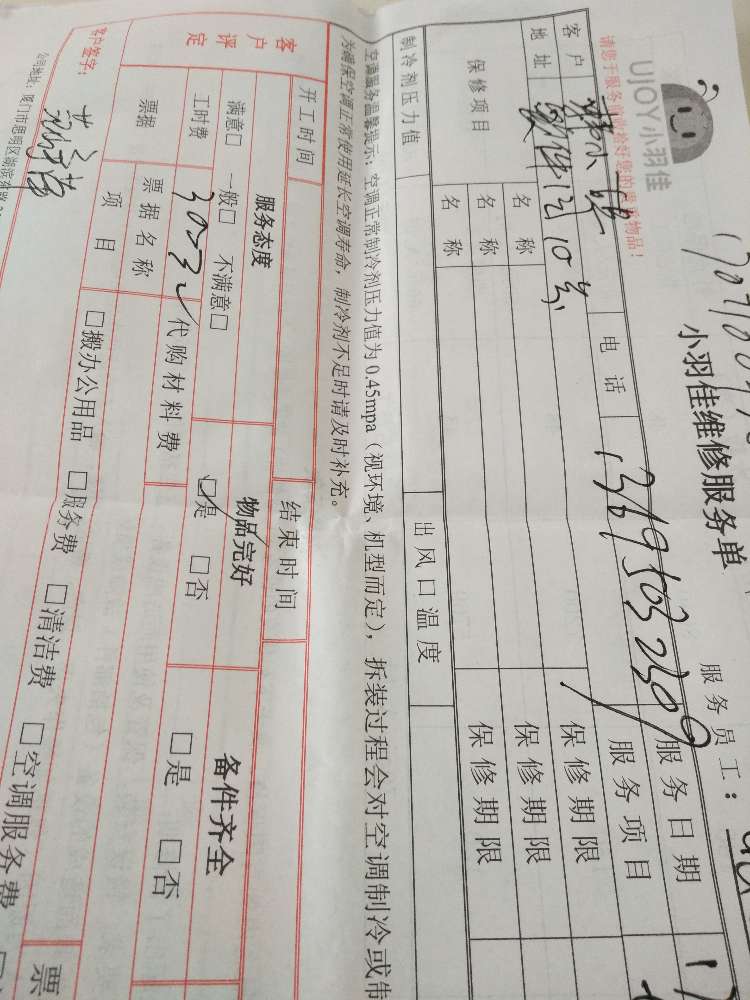 UJOY小羽佳
小羽佳维修服务单
请您于服务前收拾好您的贵重物品!
服务员工:
客户
电话
13695032309
服务日期
地址
软件园
服务项目
保修项目
名称
保修期限
名称
保修期限
名称
保修期限
制冷剂压力值
出风口温度
空调服务温馨提示:空调正常制冷剂压力值为0.45mpa(视环境、机型而定),拆装过程会对空调制冷或制
为确保空调正常使用延长空调寿命,制冷剂不足时请及时补充。
开工时间
结束时间
客户评定
服务态度
物品完好
备件齐全
满意□ 一般□ 不满意□
☑是 □否
□是 □否
工时费
300元
代购材料费
票据
票据名称
项目
□搬办公用品 □服务费 □清洁费 □空调服务费
票
客户签字:
公司地址:厦门市思明区湖滨南路